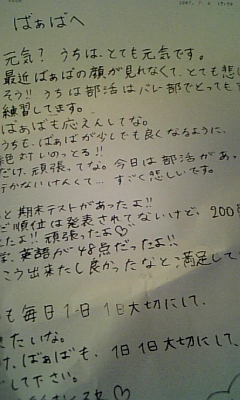 ばぁばへ
元気? うちは、とても元気です。
最近ばぁばの顔が見れなくて、とても悲
そう!! うちは部活はバレー部でとっても
練習してます。
ばぁばも応えんしてな。
うちも、ばぁばが少しでも良くなるように、
絶対 いのっとる!!
だけ、頑張ってな。今日は部活があっ
行かないけんくて… すごく悲しいです。
と 期末テストがあったよ!!
だ順位は発表されてないけど、200
たよ!! 頑張ったよ♡
英語が48点だったよ!!
こう出来たし良かったなと満足して
も毎日1日1日大切にして、
たいな。
け、ばぁばも、1日1日大切にして、
して下さい。